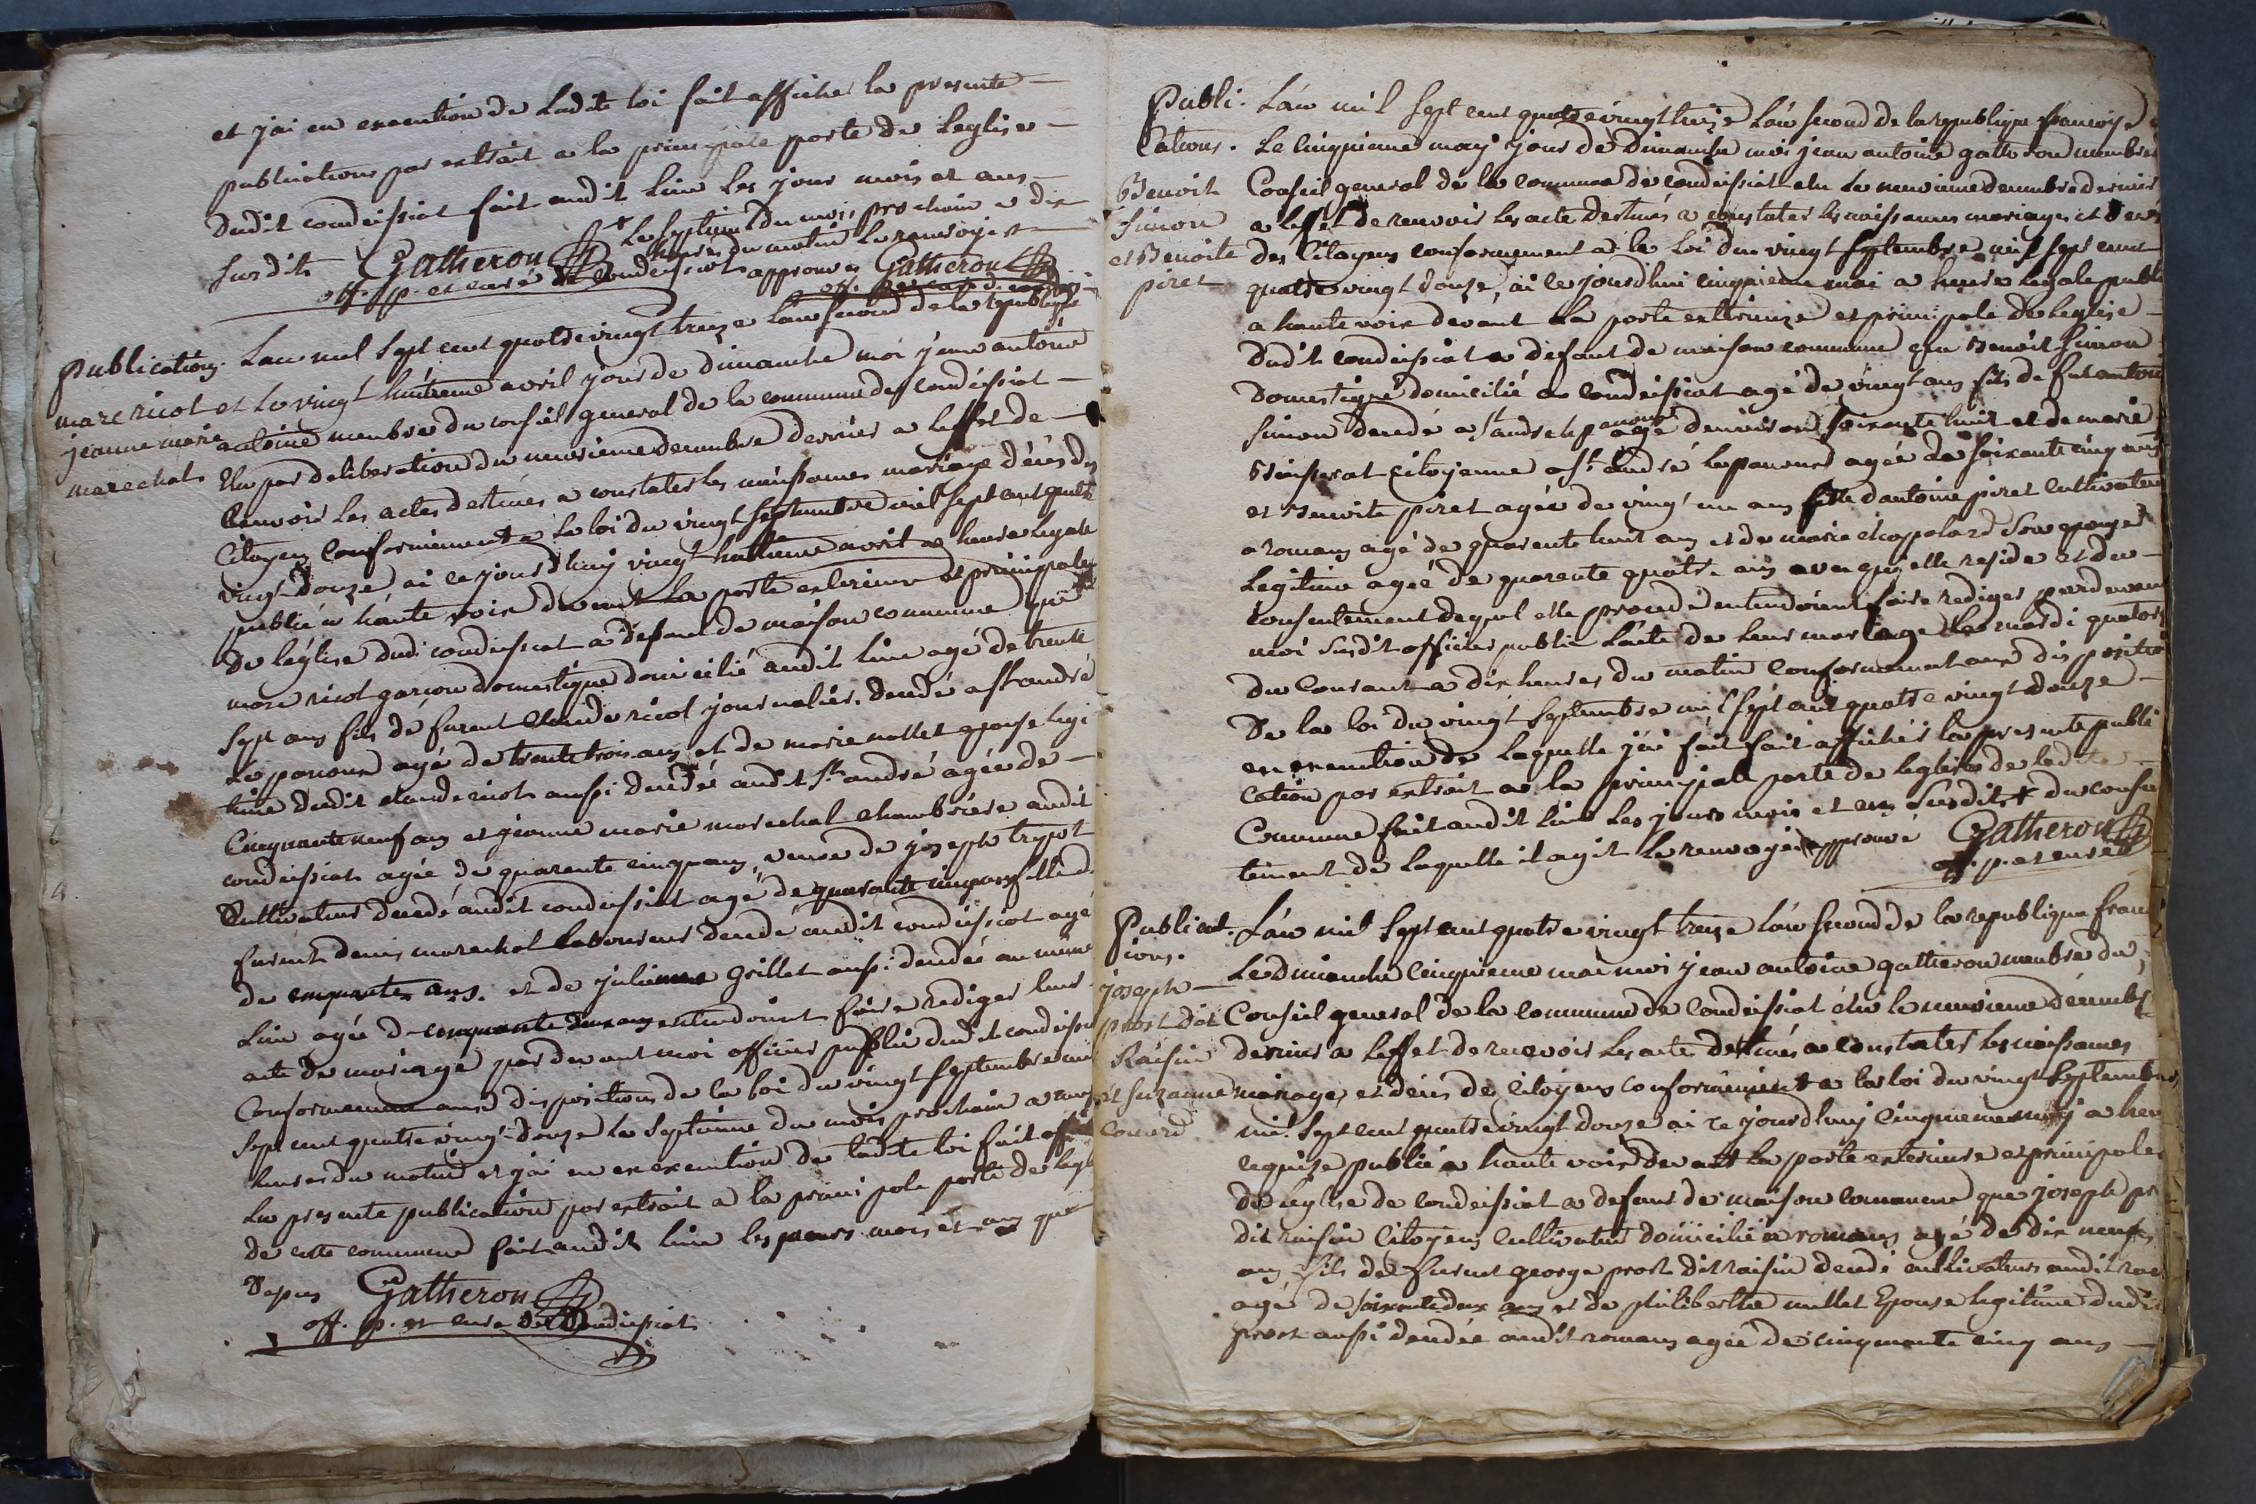 et j'ai en execution de Ladite loi fait afficher la presente
publications par extrait a la principale porte de Leglise
dudit condeissiat fait audit Lieu Les jour mois et ans
susdits Gatheron + Le septieme du mois prochain a dix
heures du matin Le renvoyé
off. p. et curé de Condeissiat approuvé Gatheron
Publications. Lan mil sept cent quatre vingt treize Lan second de la republique
marc ricol et Le vingt huitieme avril jour de dimanche moi jean antoine
jeanne marie
marechal
antoine membre du conseil general de la commune de condeissiat
Elu par deliberation du neuvieme decembre dernier a leffet de
recevoir Les actes destinés a constater les naissances mariage décès des
Citoyens Conformément a la loi du vingt septembre mil sept cent quatre
vingt douze, ai ce jourdhuy vingt huitieme avril a heure legale
publié a haute voix devant La porte exterieure et principale
de léglise dudi condeissiat a defaut de maison commune que
marc ricol garçon domestique domicilié audit lieu agé de trente
sept ans fils de furent claude ricol journalier decedé a st andré
Le panoux agé de trente trois ans et de marie nallet epouse legi
time dudit claude ricol aussi decedée audit st andré agée de
Cinquante neuf ans et jeanne marie marechal chambriere audit
condeissiat agée de quarente cinq ans, veuve de joseph trypot
Cultivateur decedé audit condeissiat agé de quarante cinq ans fille de
furent denis marechal Laboureur decedé audit condeissiat agé
de cinquante ans. et de julienne grillet aussi decedée au même
Lieu agée de cinquante deux ans entendoient faire rediger leur
acte de mariage par devant moi officier public dudit condeissiat
Conformement aux dispositions de la loi du vingt septembre mil
sept cent quatre vingt-douze Le septieme du mois prochain a onze
heures du matin et j'ai en execution de ladite loi fait afficher
La presente publication par extrait a la principale porte de legli
de cette commune fait audit lieu les jours mois et an que
Depuis Gatheron
off. p. et curé de Condeissiat
Publi- Lán mil sept cent quatre vingt treize Lán second de la republique francoise
cations. Le Cinquieme may jour de dimanche moi jean antoine gatheron membre
Benoit Conseil general de la commune de condeissiat elu Le neuvieme decembre dernier
simon a leffet de recevoir les acte destinés a constater les naissances mariages et décès
et Benoite des Citoyens conformement a la loi du vingt septembre mil sept cent
piret quatre vingt douze, ai ce jourdhui cinquieme mai a heure legale publi
a haute voix devant la porte exterieure et principale de Leglise
dudit condeissiat a defaut de maison commune que Benoit simon
domestique domicilié a condeissiat agé de vingt ans fils de fut antoine
simon decedé a st andré le panoux agé denviron soixante huit et de marie
citoyenne a st andré le panoux agée de soixante cinq ans
et Benoite piret agée de vingt un ans fille dantoine piret cultivateur
a romans agé de quarente huit ans et de marie chapolard son epouse
Legitime agée de quarente quatre ans avec qui elle reside et du
consentement dequel elle procede entendoient faire rediger par devant
moi susdit officier public Lácte de leur mariage Le mardi quatorze
du Courant a dix heures du matin conformement aux dispositio
de la loi du vingt septembre mil sept cent quatre vingt douze
en execution de laquelle j'ai fait fait afficher la presente publi
cation par extrait a la principale porte de leglise de ladite
Commune fait audit lieu Les jours mois et an susdits + du consen
tement de laquelle il agit Le renvoyé approuvé Gatheron
off. p. et curé
Publicat- Lán mil sept cent quatre vingt treize lán second de la republique franc
ions. Le dimanche Cinquieme mai moi jean antoine gatheron membre du
joseph Conseil general de la commune de Condeissiat élu le neuvieme décembre
prost dit dernier a Leffet de recevoir Les acte destinés a constater les naissances
Raisin
et suzanne mariage et décès des Citoyens conformément a la loi du vingt septembre
mil sept cent quatre vingt douze ai ce jourdhuy cinquieme may a heu
requise publié a haute voix devant La porte exterieure et principale
de leglise de condeissiat a defaut de maison commune que joseph pr
dit raisin Citoyens cultivateur domicilié a romans agé de dix neuf
ans, fils de furent george prost dit raisin decedé cultivateur audit rom
agé de soixante deux ans et de philiberthe nallet Epouse legitime dudit
prost aussi decedée audit romans agée de cinquante cinq ans